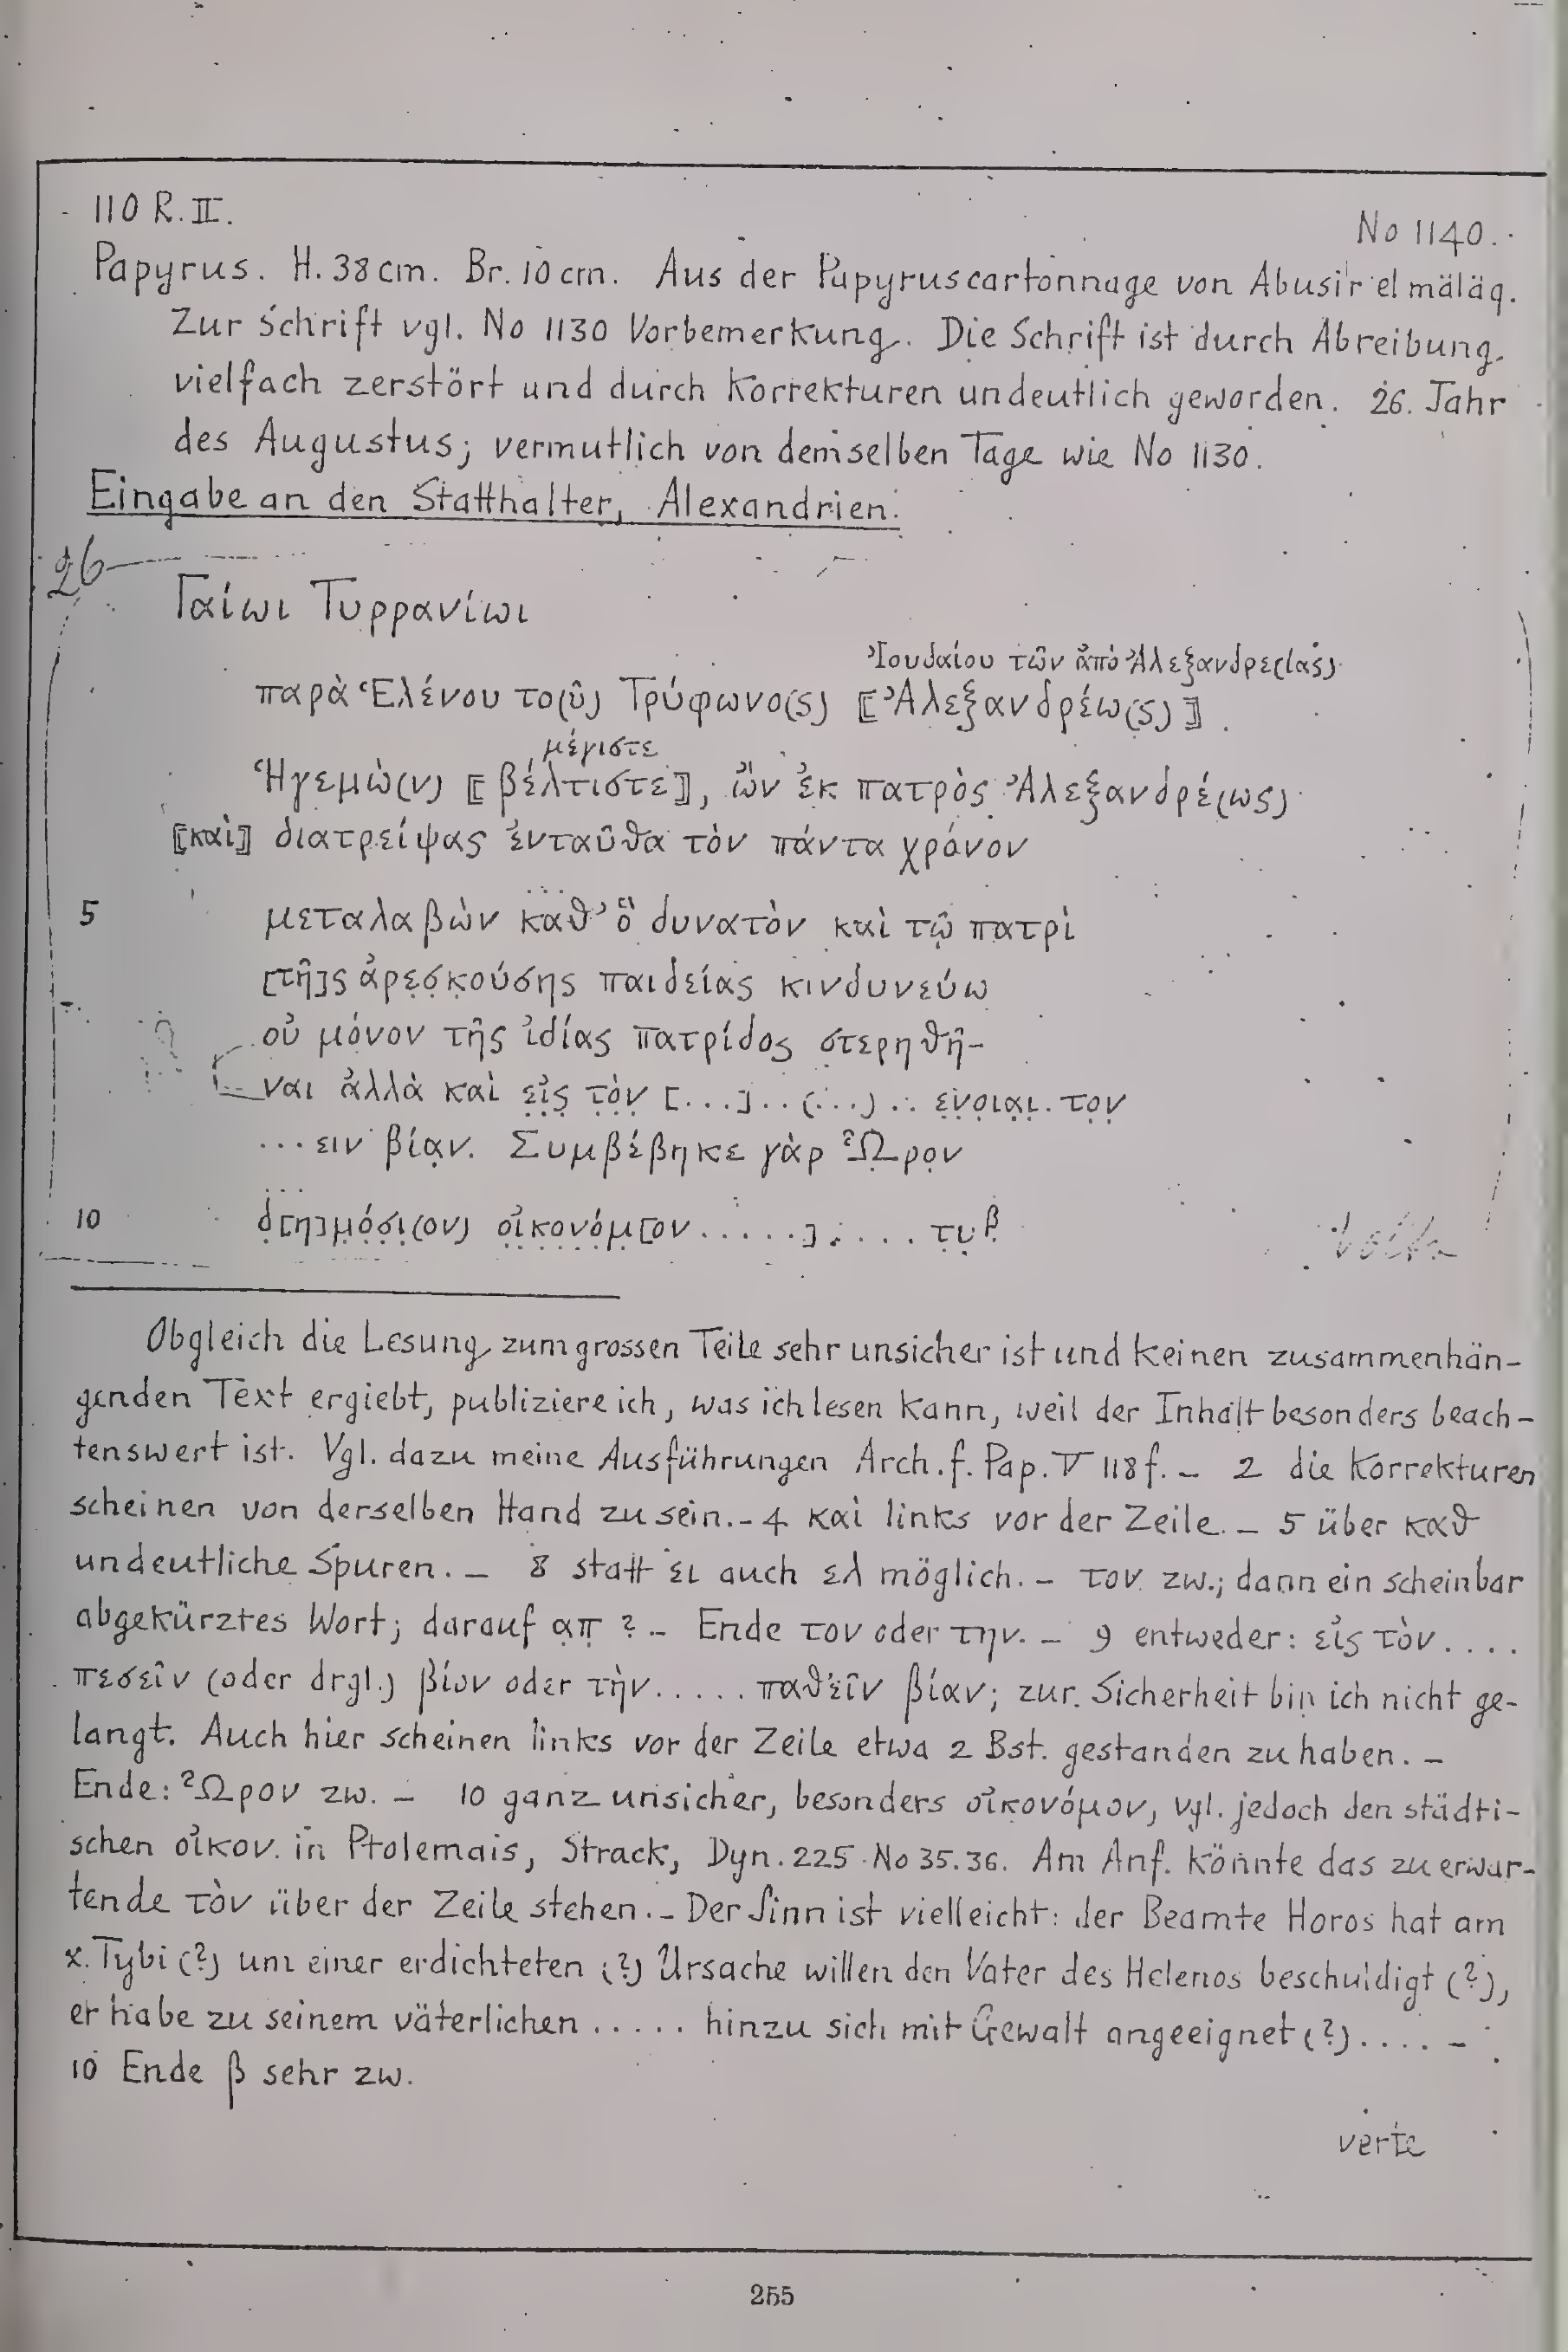 110 R. II.
No 1140.
Papyrus. H. 38 cm. Br. 10 cm. Aus der Papyruscartonnage von Abusir el mäläq.
Zur Schrift vgl. No 1130 Vorbemerkung. Die Schrift ist durch Abreibung
vielfach zerstört und durch Korrekturen undeutlich geworden. 26. Jahr
des Augustus; vermutlich von demselben Tage wie No 1130.
Eingabe an den Statthalter, Alexandrien.
26
Γαίωι Τυρρανίωι
Ἰουδαίου τῶν ἀπὸ Ἀλεξανδρε(ίας)
παρὰ Ἑλένου το(ῦ) Τρύφωνο(ς) ⟦Ἀλεξανδρέω(ς)⟧.
μέγιστε
Ἡγεμὼ(ν) ⟦βέλτιστε⟧, ὢν ἐκ πατρὸς Ἀλεξανδρέ(ως)
⟦καὶ⟧ διατρείψας ἐνταῦθα τὸν πάντα χρόνον
5 μεταλαβὼν καθ’ ὃ δυνατὸν καὶ τῷ πατρὶ
[τῆ]ς ἀρε̣σ̣κ̣ούσης παιδείας κινδυνεύω
οὐ μόνον τῆς ἰδίας πατρίδος στερηθῆ-
ναι ἀλλὰ καὶ ε̣ἰ̣ς̣ τ̣ὸ̣ν̣ [...]..(...).. ε̣ν̣ο̣ι̣α̣ι̣. τ̣ο̣ν̣
...ειν βία̣ν. Συμβέβηκε γὰρ Ὧ̣ρο̣ν
10 δ̣[η]μ̣ό̣σ̣ι̣(ον) ο̣ἰ̣κ̣ο̣ν̣ό̣μ̣[ον.....]..... τ̣υ̣β̣
Obgleich die Lesung zum grossen Teile sehr unsicher ist und keinen zusammenhän-
genden Text ergiebt, publiziere ich, was ich lesen kann, weil der Inhalt besonders beach-
tenswert ist. Vgl. dazu meine Ausführungen Arch. f. Pap. V 118 f. – 2 die Korrekturen
scheinen von derselben Hand zu sein. – 4 καὶ links vor der Zeile. – 5 über καθ
undeutliche Spuren. – 8 statt ει auch ελ möglich. – τον zw.; dann ein scheinbar
abgekürztes Wort; darauf α̣π̣ ? – Ende τον oder την. – 9 entweder: εἰς τὸν ....
πεσεῖν (oder drgl.) βίον oder τὴν ..... παθεῖν βίαν; zur Sicherheit bin ich nicht ge-
langt. Auch hier scheinen links vor der Zeile etwa 2 Bst. gestanden zu haben. –
Ende: Ὧρον zw. – 10 ganz unsicher, besonders οἰκονόμον, vgl. jedoch den städti-
schen οἰκον. in Ptolemais, Strack, Dyn. 225 No 35. 36. Am Anf. könnte das zu erwar-
tende τὸν über der Zeile stehen. – Der Sinn ist vielleicht: der Beamte Horos hat am
x. Tybi (?) um einer erdichteten (?) Ursache willen den Vater des Helenos beschuldigt (?),
er habe zu seinem väterlichen ..... hinzu sich mit Gewalt angeeignet (?).... –
10 Ende β sehr zw.
verte
255